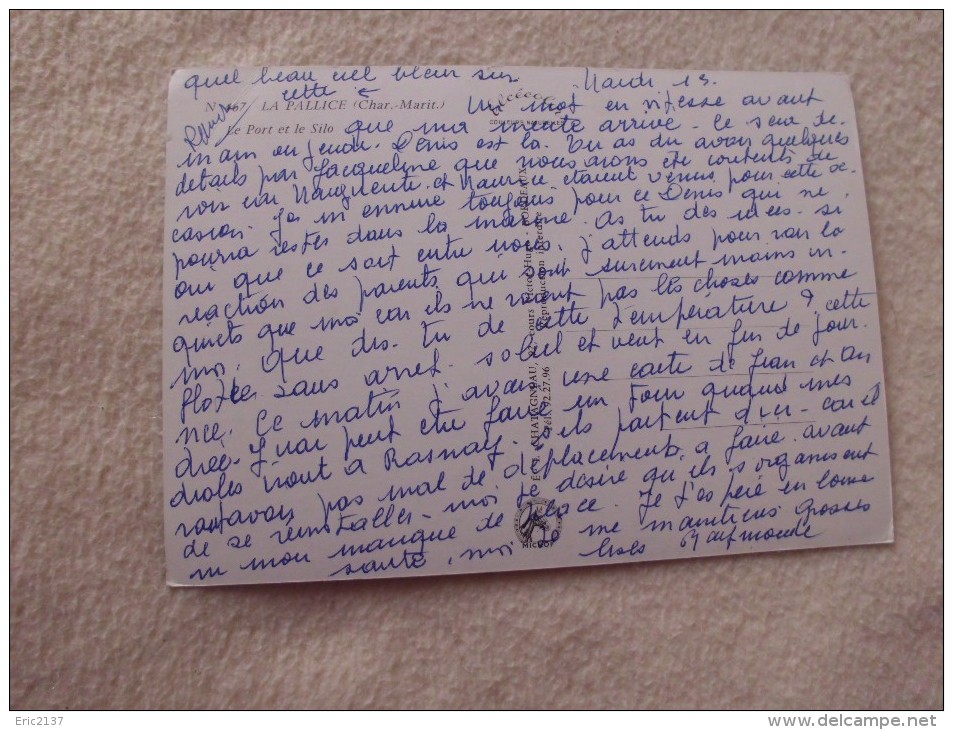 quel beau ciel bleu sur
cette
Mardi 13.
N° 467 LA PALLICE (Char.-Marit.)
Le Port et le Silo
COULEURS NATURELLES
Un mot en vitesse avant
que ma meute arrive. Ce sera de-
main ou jeudi. Denis est là. Tu as du avoir quelques
details par Jacqueline que nous avons été contents de
voir car Marguerite et Maurice étaient venus pour cette oc-
casion. Ja m'ennuie toujours pour ce Denis qui ne
pourra rester dans la marine. As tu des idées. si
oui que ce soit entre nous. J'attends pour voir la
reaction des parents qui sont surement moins in-
quiets que moi car ils ne voient pas les choses comme
moi. Que dis-tu de cette température? cette
flotte sans arret. soleil et vent en fin de jour-
née. Ce matin j'avais une carte de Jean et An
drée. J'irai peut etre faire un tour quand mes
droles iront à Rosnay. s'ils partent d'ici - car il
vont avoir pas mal de déplacements à faire avant
de se réinstaller - moi je désire qu'ils s'organisent
vu mon manque de place. Je t'espère en bonne
santé, moi je me maintiens. Grosses
bises Raymonde
Edit. CHATAGNEAU, 92, cours Victor-Hugo - BORDEAUX
Tél. 92.27.96 Reproduction interdite
Eric2137
www.delcampe.net